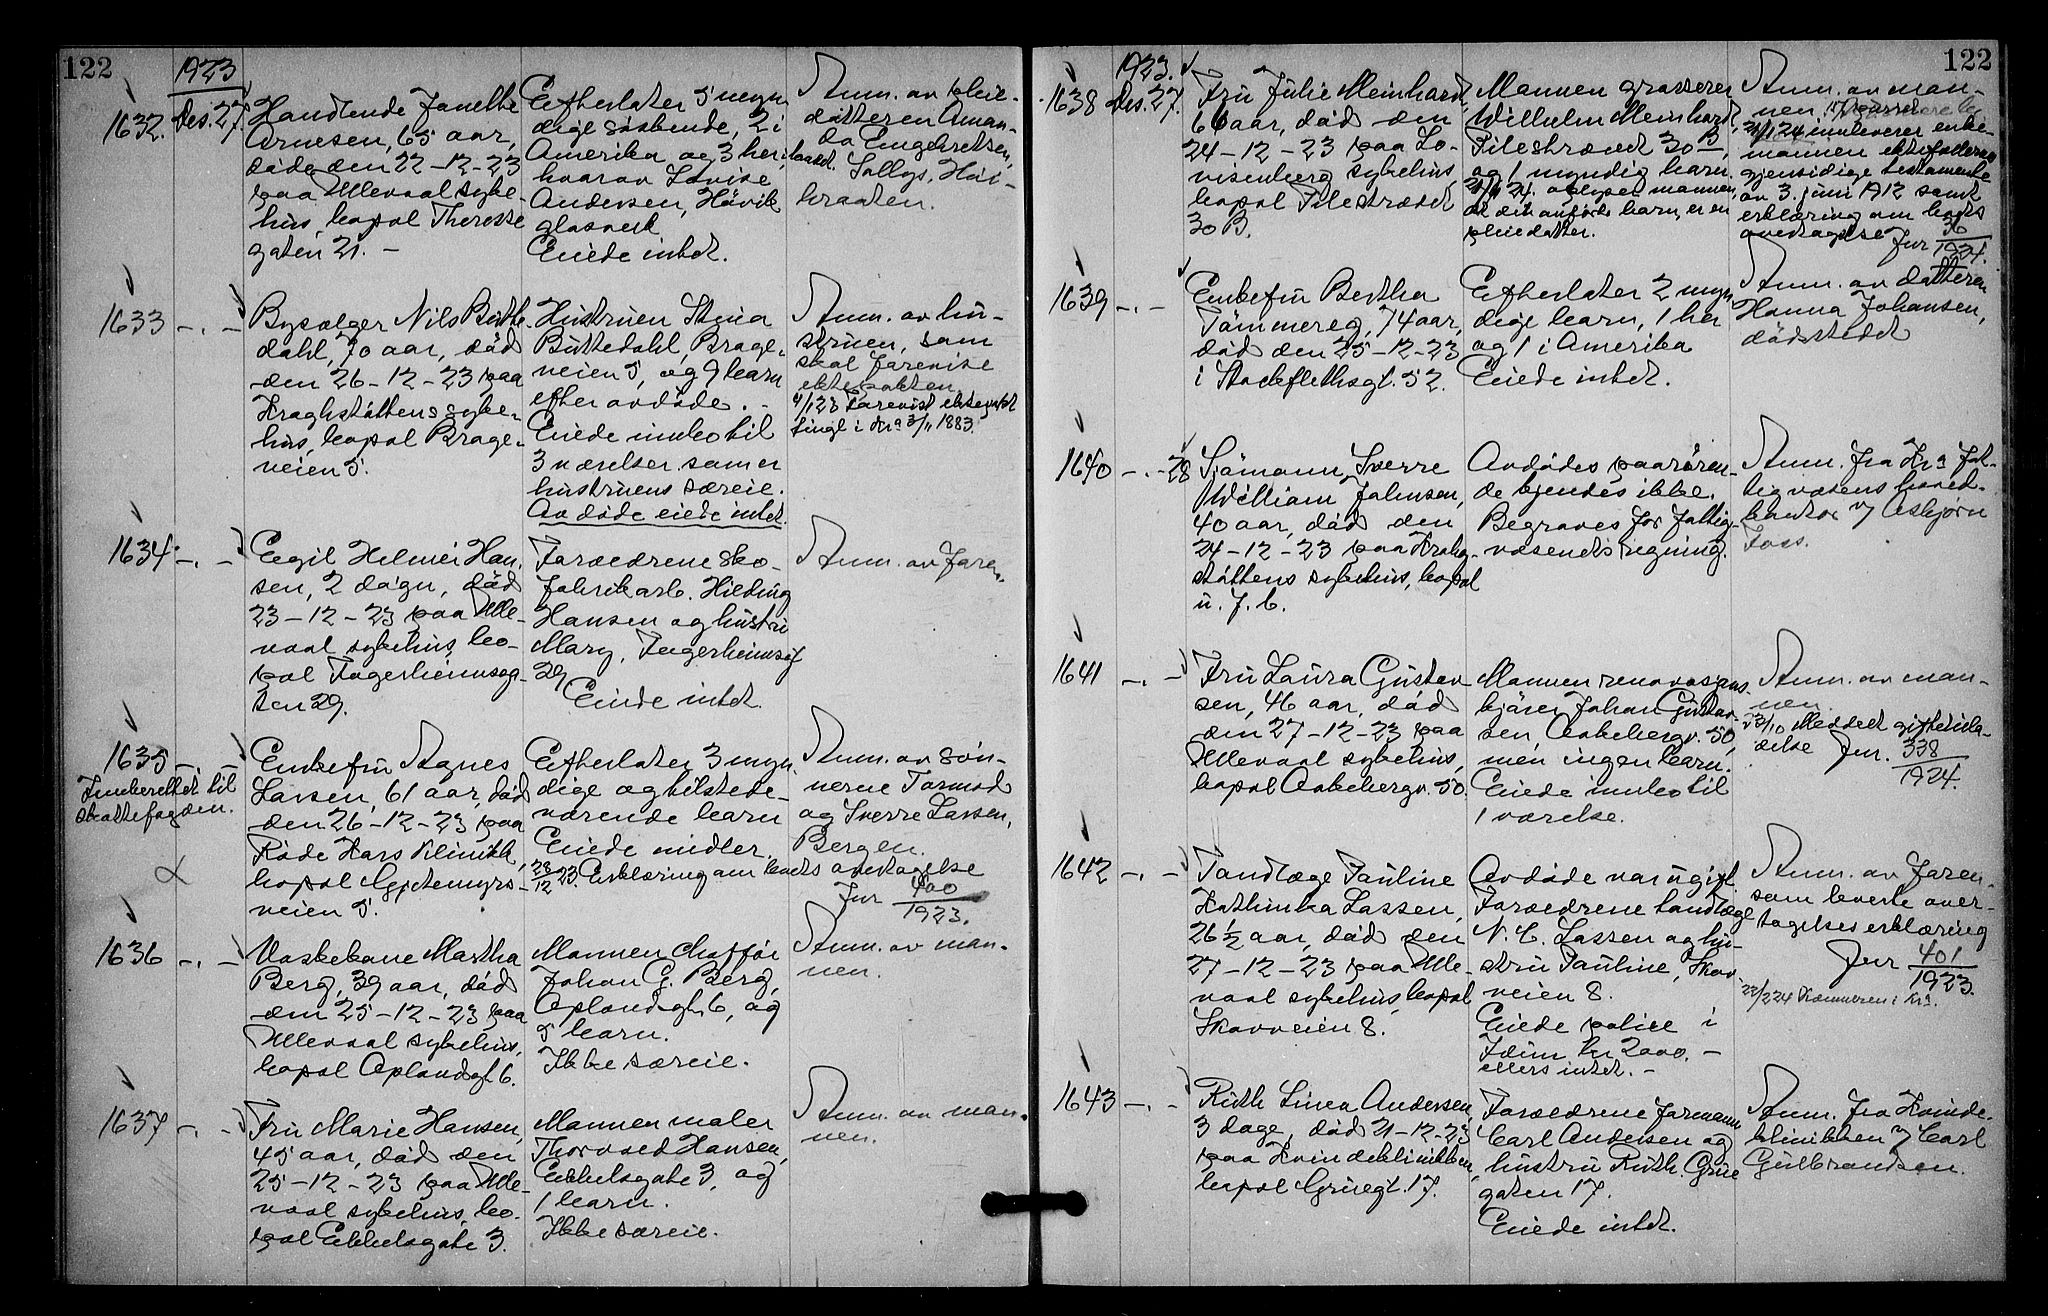 122
1923
1632. Des. 27.
Handlende Janethe
Arnesen, 65 aar,
døde den 22-12-23
paa Ullevaal syke-
hus, bopæl Therese
gaten 21. -
Efterlater 5 myn
dige søskende, 2 i
Amerika og 3 her,
hvorav Lovise
Andersen, Høvik
glasverk
Eiede intet.
Anm. av pleie-
datteren Aman-
da Engebretsen,
braaten.
1633 -.-
Dahl, 70 aar, død
den 26-12-23 paa
Kroghstøttens syke-
hus, bopæl Brage-
veien 5.
Hustruen Stina
Buttedahl, Brage-
veien 5, og 9 barn
efter avdøde. -
Eiede innbo til
3 værelser som er
hustruens særeie.
Avdøde eiede intet.
Anm. av hu-
struen, som
skal forevise
ektepakten.
Forevist ektepakt
tingl. i Kra 3/11 1883.
1634 -.-
Egil Helmer Han-
sen, 2 døgn, død
23-12-23 paa Ulle-
vaal sykehus, bo-
pæl Fagerheimsga-
ten 29.
Forældrene sko-
fabrikarb. Hilding
Hansen og hustru
Mary, Fagerheimsgt
29
Eiede intet.
Anm. av faren.
1635 -.-
Innberettet til
skattefogden.
Enkefru Agnes
Lassen, 61 aar, død
den 26-12-23 paa
Røde Kors Klinikk,
bopæl Gjetemyrs-
veien 5.
Efterlater 3 myn
dige og tilstede-
værende barn
Eiede midler.
28/12 23. Erklæring om boets overtagelse
Jnr 400/1923.
Anm. av søn-
nerne Tormod
og Sverre Lassen,
Bergen.
1636 -.-
Vaskekone Martha
Berg, 39 aar, død
den 25-12-23 paa
Ullevaal sykehus,
bopæl Oplandsgt. 6.
Mannen chaffør
Johan G. Berg,
Oplandsgt. 6, og
5 barn.
Ikke særeie.
Anm. av man-
nen.
1637 -.-
Fru Marie Hansen,
45 aar, død den
25-12-23 paa Ulle-
vaal sykehus, bo-
pæl Eckbelsgate 3.
Mannen maler
Thorvald Hansen,
Eckbelsgate 3, og
1 barn.
Ikke særeie.
Anm. av man-
nen.
122
1923.
1638 Des. 27.
Fru Julie Meinhardt,
66 aar, død den
24-12-23 paa Lo-
visenberg sykehus,
bopæl Pilestrædet
30 B.
Mannen grosserer
Wilhelm Meinhardt,
Pilestrædet 30 B,
og 1 myndig barn.
oplyser mannen,
at den anførte barn er en
pleiedatter.
Anm. av man-
nen,
21/1 24 innleverer enke-
mannen ektefællernes
gjensidige testamente
av 3. juni 1912 samt
erklæring om boets
overtagelse Jnr 36/1924.
1639 -.-
Enkefru Bertha
Tømmereg, 74 aar,
død den 25-12-23
i Stockflethsgt. 52.
Efterlater 2 myn
dige barn, 1 her
og 1 i Amerika
Eiede intet.
Anm. av datteren
Hanna Johansen,
dødsstedet
1640 -.- 28
Sjømann Sverre
William Johnsen,
40 aar, død den
24-12-23 paa Krohg-
støttens sykehus, bopæl
u. f. b.
Avdødes paarøren-
de kjendes ikke.
Begraves for fattig-
væsenets regning.
Anm. fra Kra fat-
tigvæsens hoved-
kontor v/ Asbjørn
Foss.
1641 -.-
Fru Laura Gustav-
sen, 46 aar, død
den 27-12-23 paa
Ullevaal sykehus,
bopæl Aakebergv. 50.
Mannen renovasjons-
kjører Johan Gustav-
sen, Aakebergv. 50,
men ingen barn.
Eiede innbo til
1 værelse.
Anm. av man-
nen.
23/10 Meddelt giftetilla-
delse Jnr. 338/1924.
1642 -.-
Tandlæge Pauline
Kathinka Lassen,
26 1/2 aar, død den
27-12-23 paa Ulle-
vaal sykehus, bopæl
Skovveien 8.
Avdøde var ugift.
Forældrene tandlæge
N. C. Lassen og hu-
stru Pauline, Skov-
veien 8.
Eiede police i
Idun kr 2000. -
ellers intet. -
Anm. av faren,
som leverte over-
tagelseserklæring
Jnr 401/1923.
22/2 24 Kæmneren i Kra.
1643 -.-
Ruth Linea Andersen,
3 dage, død 21-12-23
paa Kvindeklinikken,
bopæl Grüegt. 17.
Forældrene formann
Carl Andersen og
hustru Ruth, Grüe
gaten 17.
Eiede intet.
Anm. fra Kvinde-
klinikken v/ Carl
Gulbrandsen.